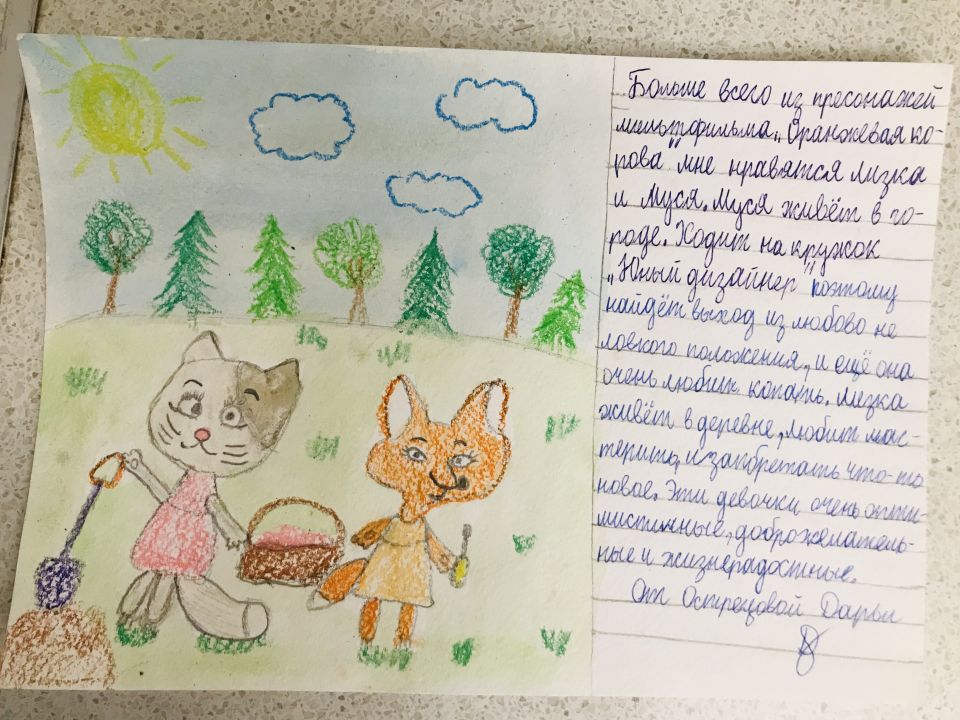 Больше всего из пресонажей
мультфильма „Оранжевая ко-
рова" мне нравятся Лизка
и Муся. Муся живёт в го-
роде. Ходит на кружок
„Юный дизайнер" поэтому
найдёт выход из любово не
ловкого положения, и ещё она
очень любит копать. Лизка
живёт в деревне, любит мас-
терить, изабретать что-то
новое. Эти девочки очень опти-
мистичные, доброжелатель-
ные и жизнерадостные.
От Острецовой Дарьи